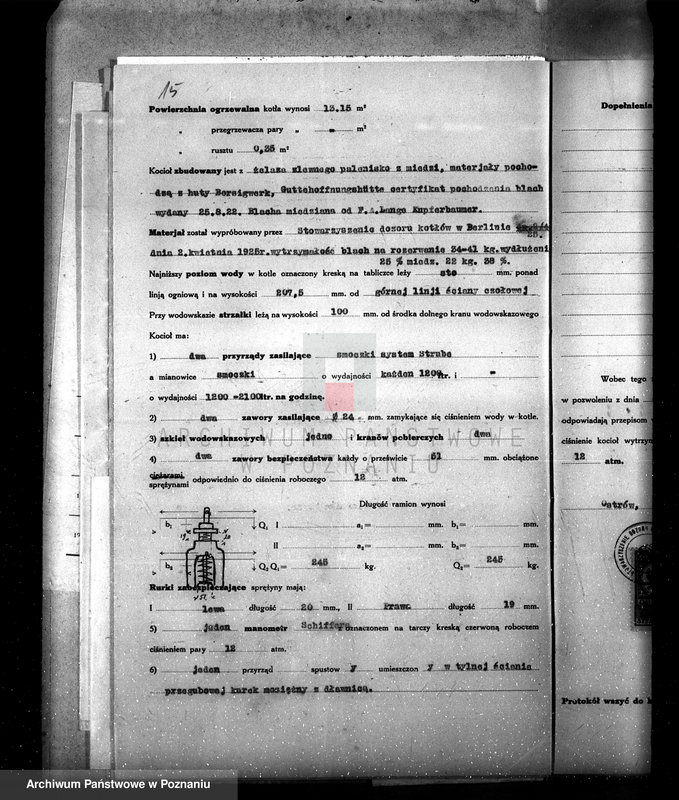 15
Powierzchnia ogrzewalna kotła wynosi 13.15 m²
" przegrzewacza pary " - m²
" rusztu 0,35 m²
Kocioł zbudowany jest z żelaza zlewnego palenisko z miedzi, materjały pocho-
dzą z huty Borsigwerk, Guttehoffnungshütte certyfikat pochodzenia blach
wydany 25.8.22. Blacha miedziana od F.A.Lange Kupferhaumer.
Materjał został wypróbowany przez Stowarzyszenie dozoru kotłów w Berlinie
25.
dnia 2.kwietnia 1925r.wytrzymałość blach na rozerwanie 34-41 kg.wydłużeni
25 % miedz. 22 kg. 38 %.
Najniższy poziom wody w kotle oznaczony kreską na tabliczce leży sto mm. ponad
linją ogniową i na wysokości 207,5 mm. od górnej linji ściany czołowej
Przy wodowskazie strzałki leżą na wysokości 100 mm. od środka dolnego kranu wodowskazowego
Kocioł ma:
1) dwa przyrządy zasilające smoczki system Strube
a mianowice smoczki o wydajności każden 1200 ltr. i -
o wydajności 1200 -2100 ltr. na godzinę.
2) dwa zawory zasilające ∅ 24 mm. zamykające się ciśnieniem wody w kotle.
3) szkieł wodowskazowych jedno i kranów pobierczych dwa
4) dwa zawory bezpieczeństwa każdy o prześwicie 51 mm. obciążone
ciężarami
sprężynami odpowiednio do ciśnienia roboczego 12 atm.
Długość ramion wynosi
b₁ Q₁ I a₁= mm. b₁= mm.
II a₂= mm. b₂= mm.
b₂ Q₂ Q₁= 245 kg. Q₂= 245 kg.
Rurki zabezpieczające sprężyny mają:
I lewa długość 20 mm., II Prawa długość 19 mm.
5) jeden manometr Schiffers, oznaczonem na tarczy kreską czerwoną roboczem
ciśnieniem pary 12 atm.
6) jeden przyrząd spustow y umieszczon y w tylnej ścianie
przegubowej kurek mosiężny z dławnicą.
Dopełnienia
Wobec tego
w pozwoleniu z dnia
odpowiadają przepisom
ciśnienie kocioł wytrzym
12 atm.
Ostrów,
Protokół wszyć do k
ARCHIWUM PAŃSTWOWE
W POZNANIU
Archiwum Państwowe w Poznaniu